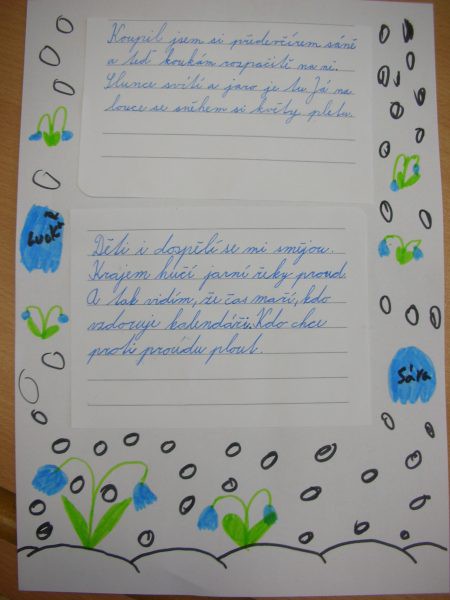 Koupil jsem si předevčírem sáně
a teď koukám rozpačitě na ně.
Slunce svítí a jaro je tu. Já na
louce se sněhem si květy pletu.
Děti i dospělí se mi smějou.
Krajem hučí jarní řeky proud.
A tak vidím, že čas maří, kdo
vzdoruje kalendáři. Kdo chce
proti proudu plout.
Sára